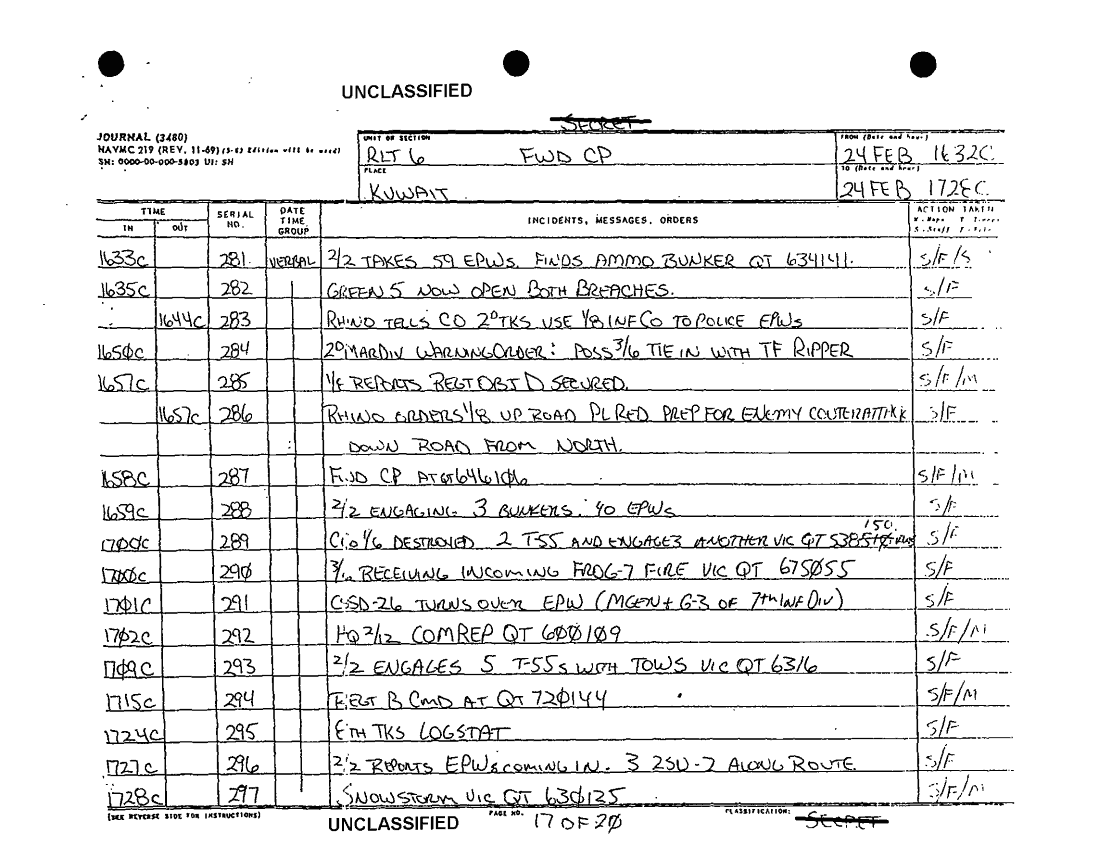 UNCLASSIFIED
SECRET
JOURNAL (3480)
NAVMC 219 (REV. 11-69) (5-63 Edition will be used)
SN: 0000-00-000-5803 UI: SH
UNIT OR SECTION
RLT 6 FWD CP
PLACE
KUWAIT
FROM (Date and hour)
24 FEB 1632C
TO (Date and hour)
24 FEB 1728C
TIME
IN OUT
SERIAL NO.
DATE TIME GROUP
INCIDENTS, MESSAGES, ORDERS
ACTION TAKEN
1633C 281 VERBAL 2/2 TAKES 59 EPWs. FINDS AMMO BUNKER QT 634141. S/F/S
1635C 282 GREEN 5 NOW OPEN BOTH BREACHES. S/F
1644C 283 RHINO TELLS CO 2ᴰTKS USE 1/8 INF CO TO POLICE EPWs S/F
1650C 284 2ᴰ MARDIV WARNING ORDER: POSS 3/6 TIE IN WITH TF RIPPER S/F
1657C 285 REPORTS REGT OBJ D SECURED. S/F/M
1657C 286 RHINO ORDERS 1/8 UP ROAD PL RED PREP FOR ENEMY COUTERATTKK S/F
DOWN ROAD FROM NORTH.
1658C 287 FWD CP AT QT 646106 S/F/M
1659C 288 2/2 ENGAGING 3 BUNKERS. 40 EPWs S/F
150
1700C 289 1/6 DESTROYED 2 T-55 AND ENGAGES ANOTHER VIC QT 538 S/F
1700C 290 3/6 RECEIVING INCOMING FROG-7 FIRE VIC QT 675055 S/F
1701C 291 CSSD-26 TURNS OVER EPW (MGEN + G-3 OF 7th INF DIV) S/F
1702C 292 HQ 2/12 COMREP QT 600109 S/F/M
1709C 293 2/2 ENGAGES 5 T-55s WITH TOWS VIC QT 6316 S/F
1715C 294 REGT B CMD AT QT 720144 S/F/M
1724C 295 8TH TKS LOGSTAT S/F
1727C 296 2/2 REPORTS EPWs COMING IN. 3 ZSU-2 ALONG ROUTE S/F
1728C 297 SNOWSTORM VIC QT 630125 S/F/M
(SEE REVERSE SIDE FOR INSTRUCTIONS)
UNCLASSIFIED
PAGE NO. 17 OF 20
CLASSIFICATION: SECRET